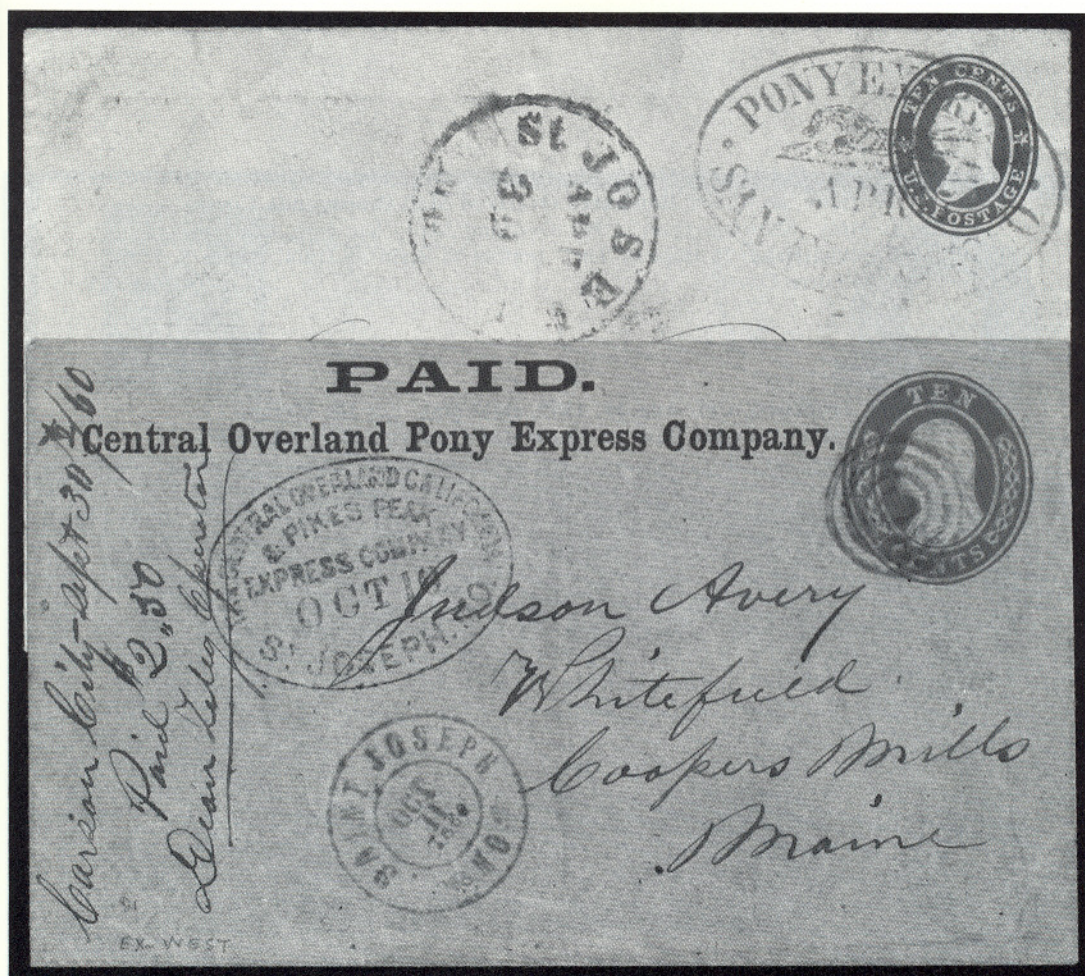 PONY
APR
TEN CENTS
U.S. POSTAGE
St JOSE
PAID.
Central Overland Pony Express Company.
TEN
CENTS
CENTRAL OVERLAND CALIFORNIA
& PIKES PEAK
EXPRESS COMPANY
OCT
ST JOSEPH. MO.
Carson City - Sept 30th/60
Paid $2,50
Dean Teleg Operator
Judson Avery
Whitefield
Coopers Mills
Maine
SAINT JOSEPH MO.
OCT
EX-WEST